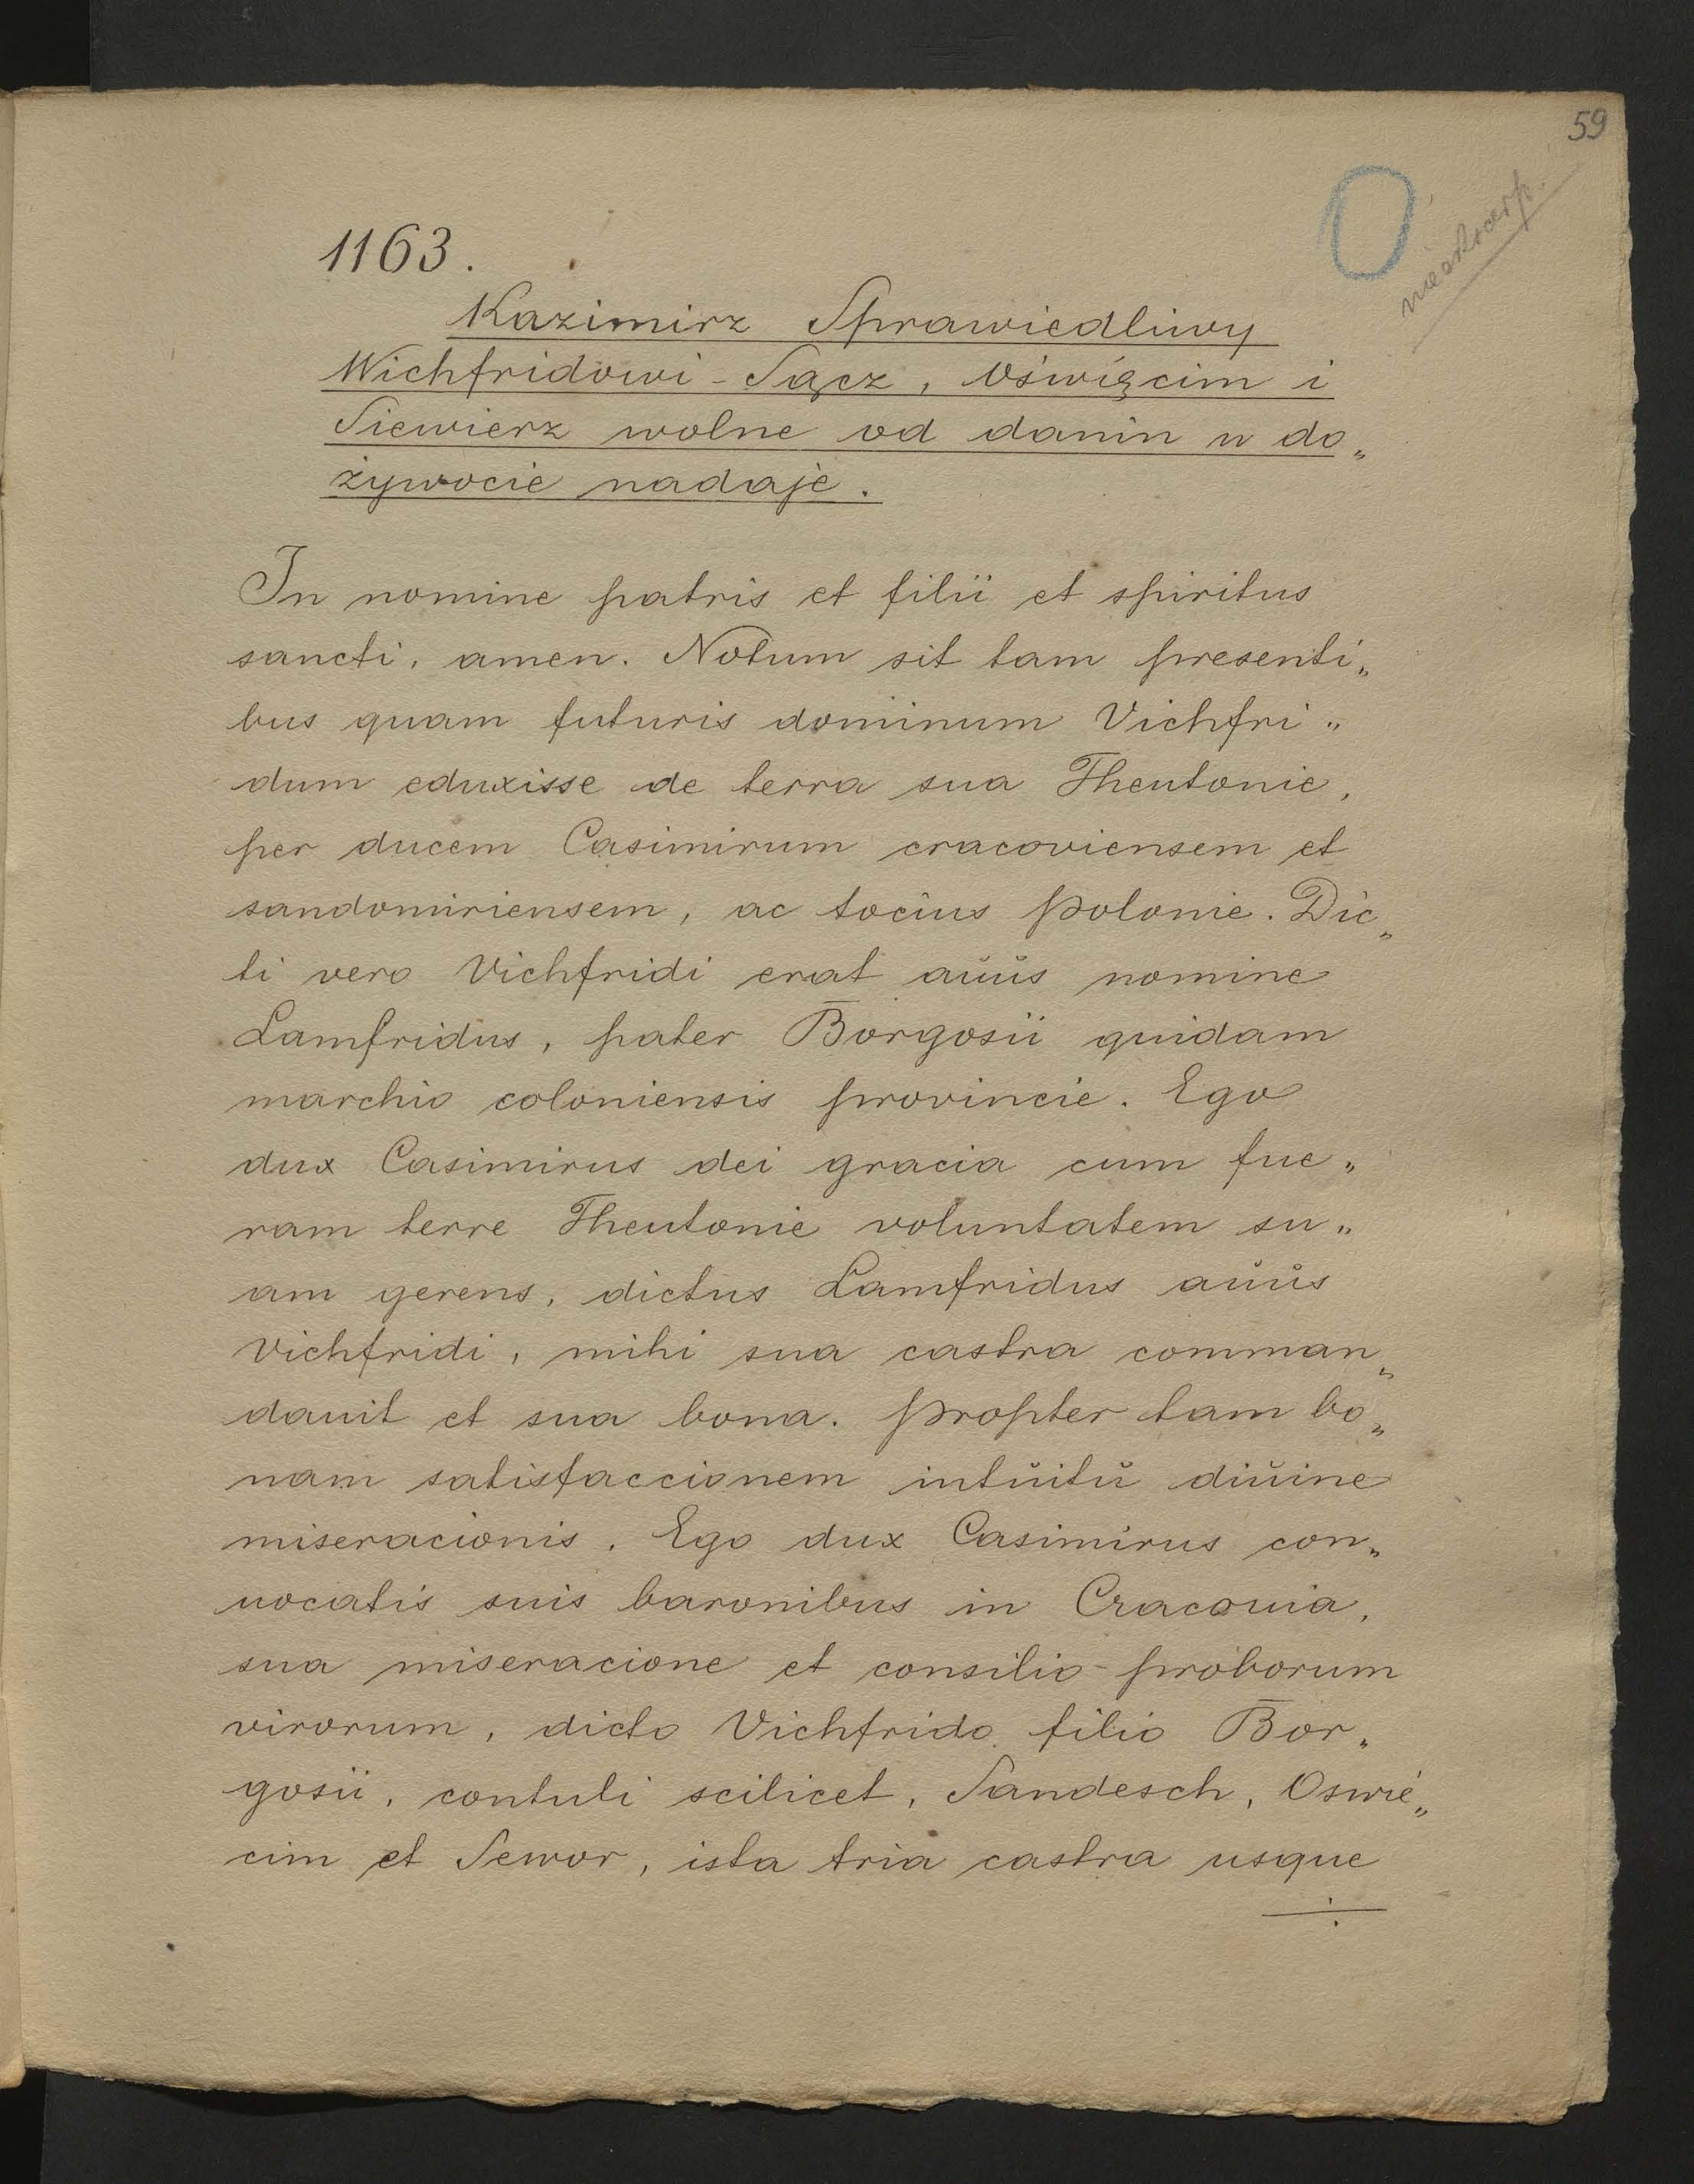 59
1163.
Kazimirz Sprawiedliwy
Wichfridowi - Sącz, Oświęcim i
Siewierz wolne od danin w do„
żywocie nadaje.
In nomine patris et filii et spiritus
sancti, amen. Notum sit tam presenti„
bus quam futuris dominum Vichfri„
dum eduxisse de terra sua Theutonie,
per ducem Casimirum cracoviensem et
sandomiriensem, ac tocius Polonie. Dic„
ti vero Vichfridi erat aŭŭs nomine
Lamfridus, pater Borgosii quidam
marchio coloniensis provincie. Ego
dux Casimirus dei gracia cum fue„
ram terre Theutonie voluntatem su„
am gerens, dictus Lamfridus aŭŭs
Vichfridi, mihi sua castra comman„
dauit et sua bona. Propter tam bo„
nam satisfaccionem intŭitŭ diŭine
miseracionis. Ego dux Casimirus con„
uocatis suis baronibus in Cracouia,
sua miseracione et consilio proborum
virorum, dicto Vichfrido filio Bor„
gosii, contuli scilicet, Sandesch, Oswie„
cim et Sewor, ista tria castra usque